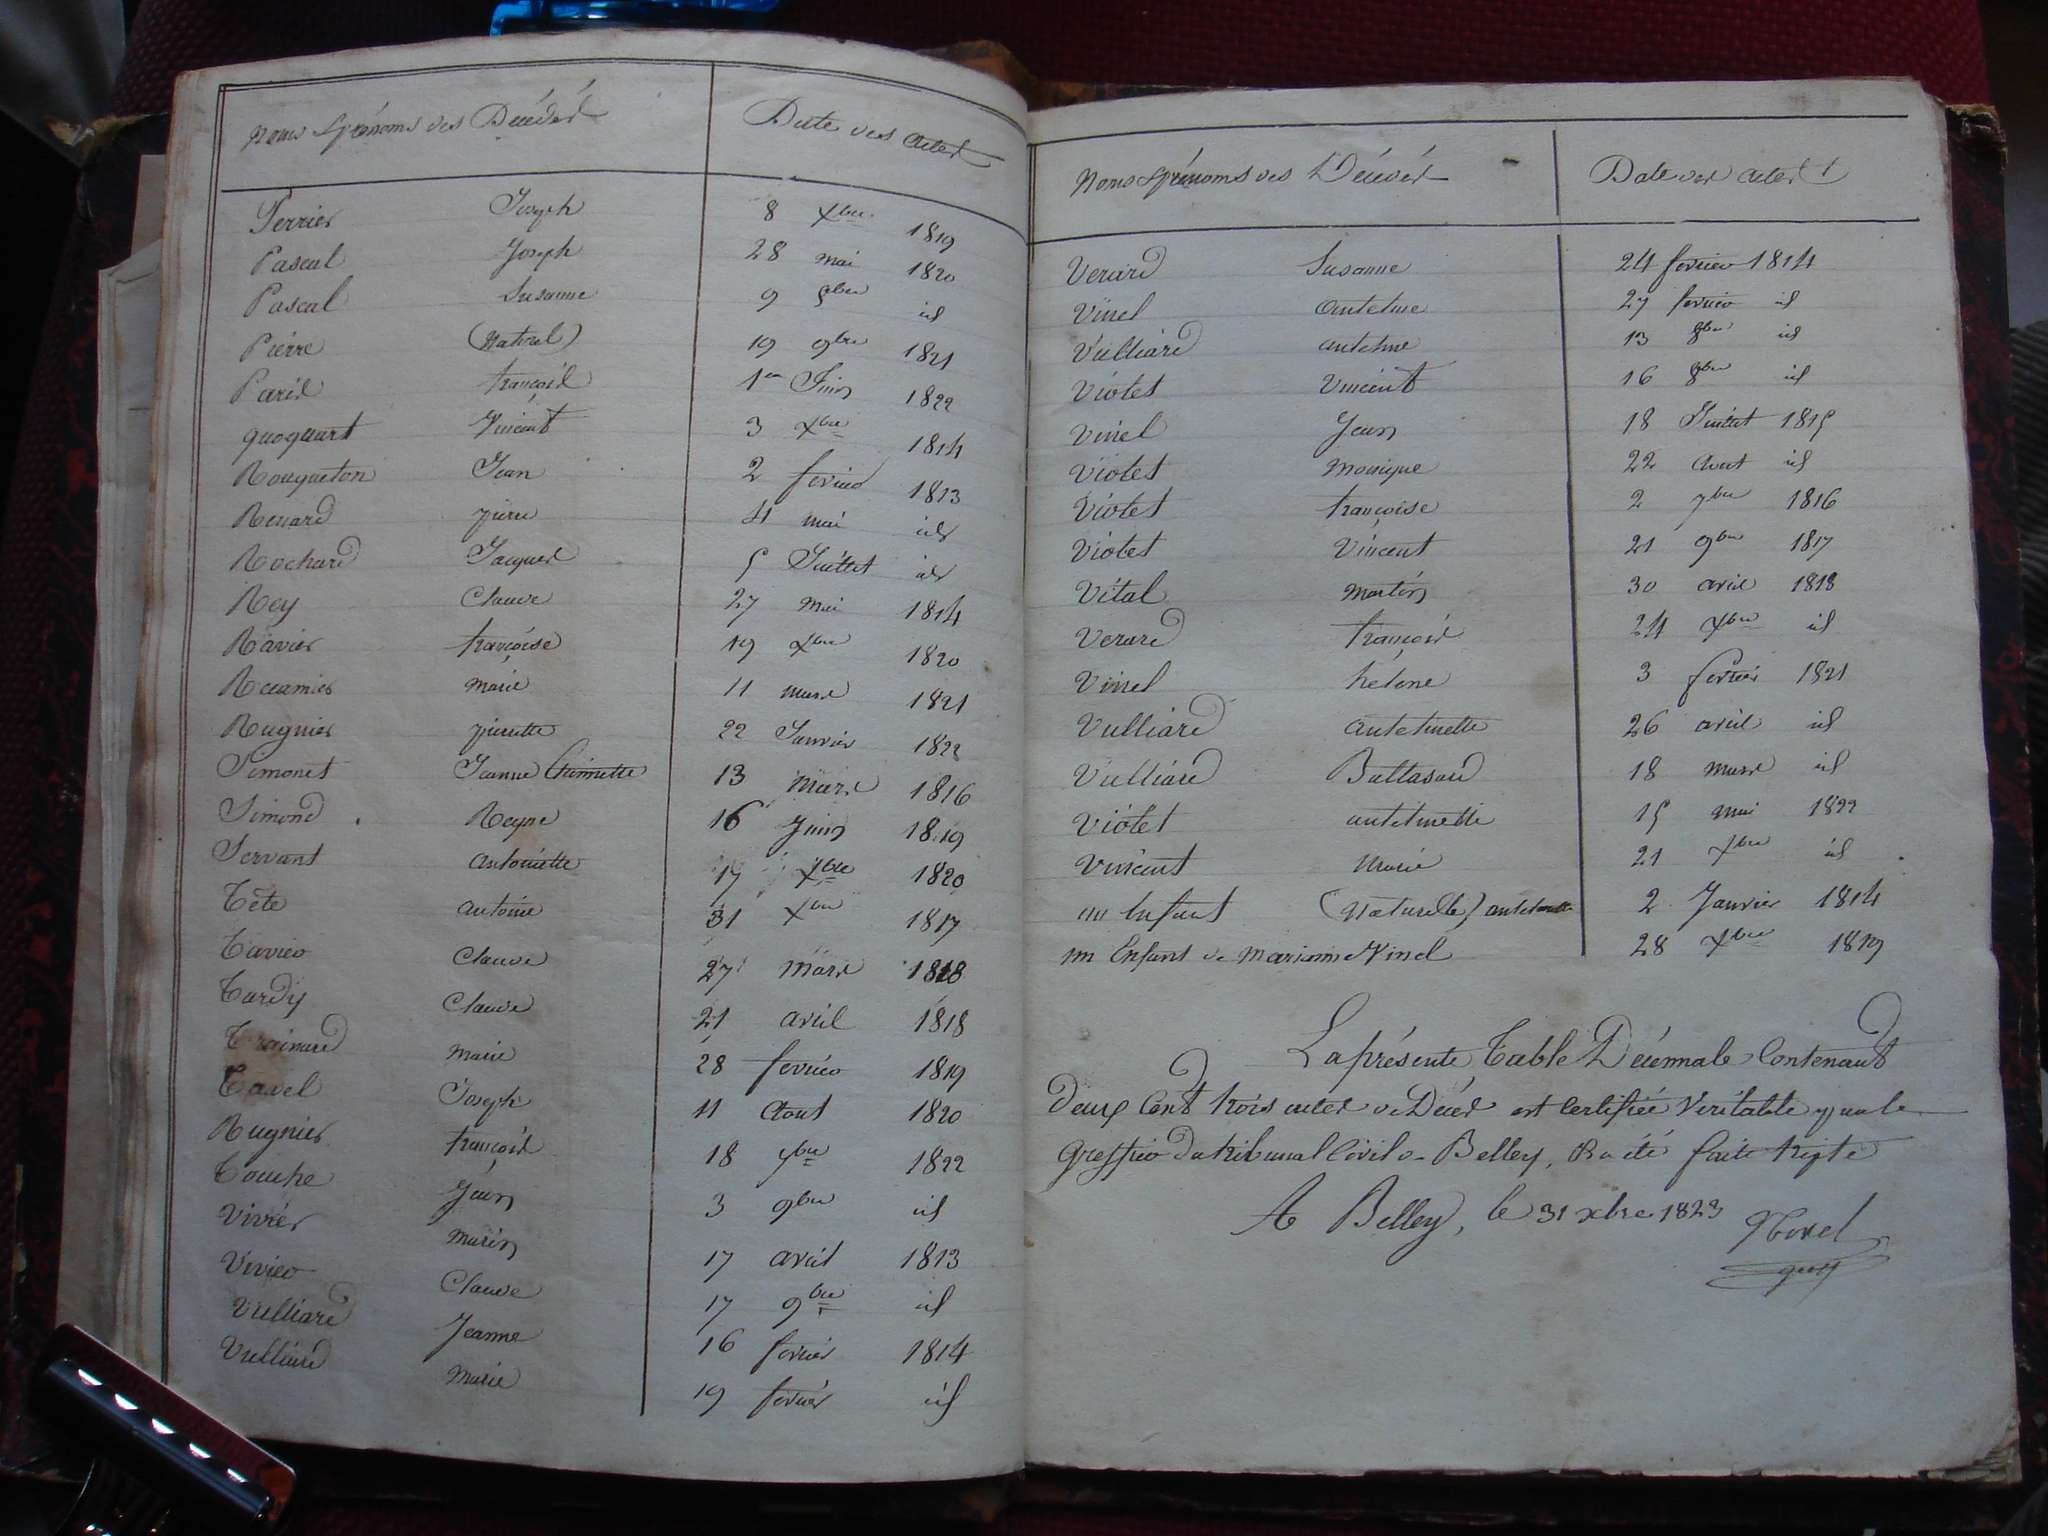 Noms & prénoms des Décédés Date des actes
Perrier Joseph 8 Xbre 1819
Pascal Joseph 28 mai 1820
Pascal Susanne 9 8bre id
Pierre (Naturel) 19 9bre 1821
Paris françois 1er Juin 1822
quoquart Vincent 3 Xbre 1814
Rougueton Jean 2 fevrier 1813
Renard pierre 11 mai id
Rochard Jacques 5 Juillet id
Rey Claude 27 mai 1814
Ravier françoise 19 Xbre 1820
Recamier marie 11 mars 1821
Rugnier pierrette 22 Janvier 1822
Simonet Jeanne 13 mars 1816
Simond Reyne 16 Juin 1819
Servant antoinette 17 Xbre 1820
Tête antoine 31 Xbre 1817
Tavier Claude 27 mars 1818
Tardy Claude 21 avril 1818
marie 28 fevrier 1819
Tavel Joseph 11 Aout 1820
Rugnier françois 18 7bre 1822
Touche Jean 3 9bre id
Vivier marin 17 avril 1813
Vivier Claude 17 9bre id
Vulliard Jeanne 16 fevrier 1814
Vulliard marie 19 fevrier id
Noms & prénoms des Décédés Date des actes
Verard Susanne 24 fevrier 1814
Vinel antelme 27 fevrier id
Vulliard antelme 13 8bre id
Violet Vincent 16 8bre id
Vinel Jean 18 Juillet 1815
Violet monique 22 Aout id
Violet françoise 2 7bre 1816
Violet Vincent 21 9bre 1817
Vital martin 30 avril 1818
Verard françois 24 Xbre id
Vinel hélene 3 fevrier 1821
Vulliard antelmette 26 avril id
Vulliard Baltasard 18 mars id
Violet antelmette 15 mai 1822
Vincent marie 21 Xbre id
un Enfant (Naturelle) 2 Janvier 1814
un Enfant de marianne Vinel 28 Xbre 1819
La présente Table Décennale Contenant
deux Cent trois actes de Décès est Certifiée Veritable par le
Greffier du tribunal Civil de Belley, & a été faite triple
A Belley, le 31 xbre 1823